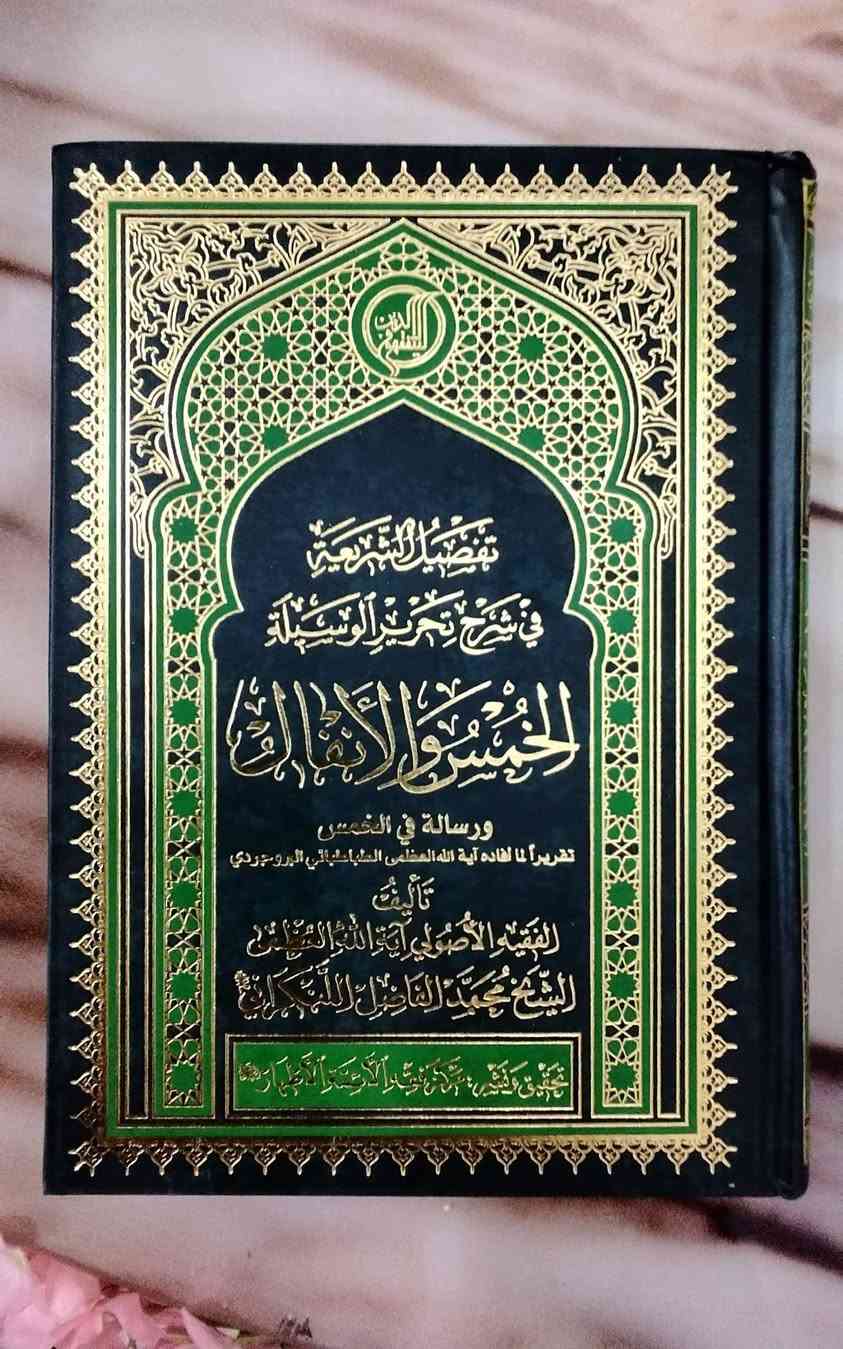 تفصيل الشريعة
في شرح تحرير الوسيلة
الخمس والأنفال
ورسالة في الخمس
تقريراً لما أفاده آية الله العظمى الطباطبائي البروجردي
تأليف
الفقيه الأصولي آية الله العظمى
الشيخ محمد الفاضل اللنكراني
تحقيق ونشر: مركز فقه الأئمة الأطهار